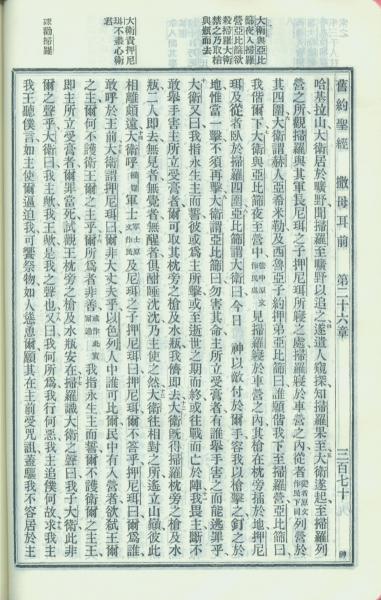 大衛與亞比
篩夜入掃羅
營亞比篩欲
殺掃羅大衛
禁之乃取槍
與瓶而去
大衛責押尼
珥不盡心衛
君
諫勸掃羅
舊約聖經 撒母耳前 第二十六章 三百七十
哈基拉山大衛居於曠野聞掃羅至曠野以追之遂遣人窺探知掃羅果至大衛遂起至掃羅列
營之所觀掃羅與其軍長尼珥之子押尼珥所寢之處掃羅寢於車營之內從者列營於
其四圍大衛謂赫人亞希米勒及西魯亞子約押弟亞比篩曰誰願偕我下至掃羅營亞比篩曰
我偕爾下大衛與亞比篩夜至營中見掃羅寢於車營之內其槍在枕旁插於地押尼
珥及從者臥於掃羅四圍亞比篩謂大衛曰今日 神以敵付於爾手容我以槍擊之釘之於
地惟當一擊不須再擊大衛謂亞比篩曰勿害其命主所立受膏者有誰舉手害之而能逃罪乎
大衛又曰我指永生主而誓彼或為主所擊或至逝世之期而終或往戰而亡於陣我畏主斷不
敢舉手害主所立受膏者爾可取其枕旁之槍及水瓶我儕即去大衛既得掃羅枕旁之槍及水
瓶二人即去無見者無覺者無醒者俱酣睡沈沈乃主使之然大衛往相對之所遙立山巔彼此
相離頗遠大衛呼軍士及尼珥之子押尼珥曰押尼珥爾不答乎押尼珥曰爾為誰
敢呼於王前大衛謂押尼珥曰爾非大丈夫乎以色列人中誰可比爾民中有人嘗者欲弒王爾
之主爾何不護衛王爾之主乎爾所為者非善我指永生主而誓爾不護衛爾之主王
即主所立受膏者爾罪當死試觀王枕旁之槍及水瓶安在掃羅識大衛之聲曰我子大衛此非
爾之聲乎大衛曰我主歟我王歟是我之聲也又曰我何所為我行何惡我主追僕何故求我主
我王聽僕言如主使爾逼迫我可饗祭物如人慫恿爾願其在主前受咒詛蓋驅我不容居於主